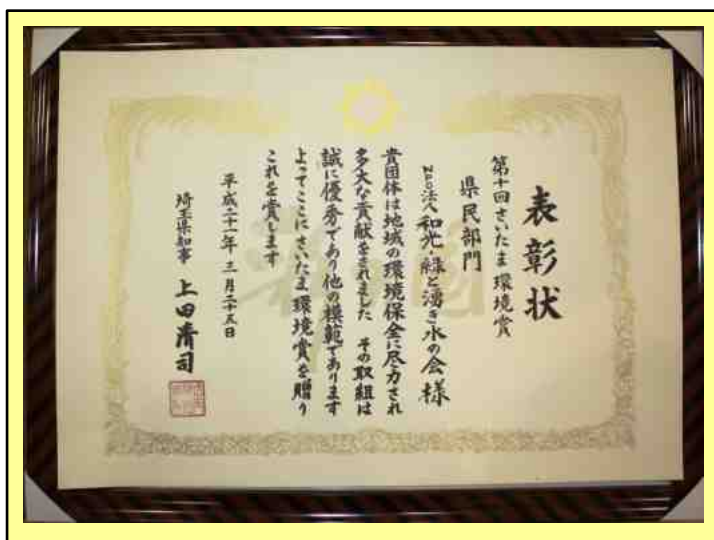 表彰状
第十回さいたま環境賞
県民部門
NPO法人和光・緑と湧き水の会様
貴団体は地域の環境保全に尽力され
多大な貢献をされました その取組は
誠に優秀であり他の模範であります
よってここにさいたま環境賞を贈り
これを賞します
平成二十一年三月二十五日
埼玉県知事 上田清司